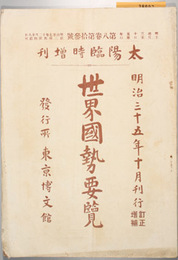 第八巻第拾參號
太陽臨時増刊
明治三十五年十月刊行
訂正
増補
世界國勢要覽
發行所 東京博文館